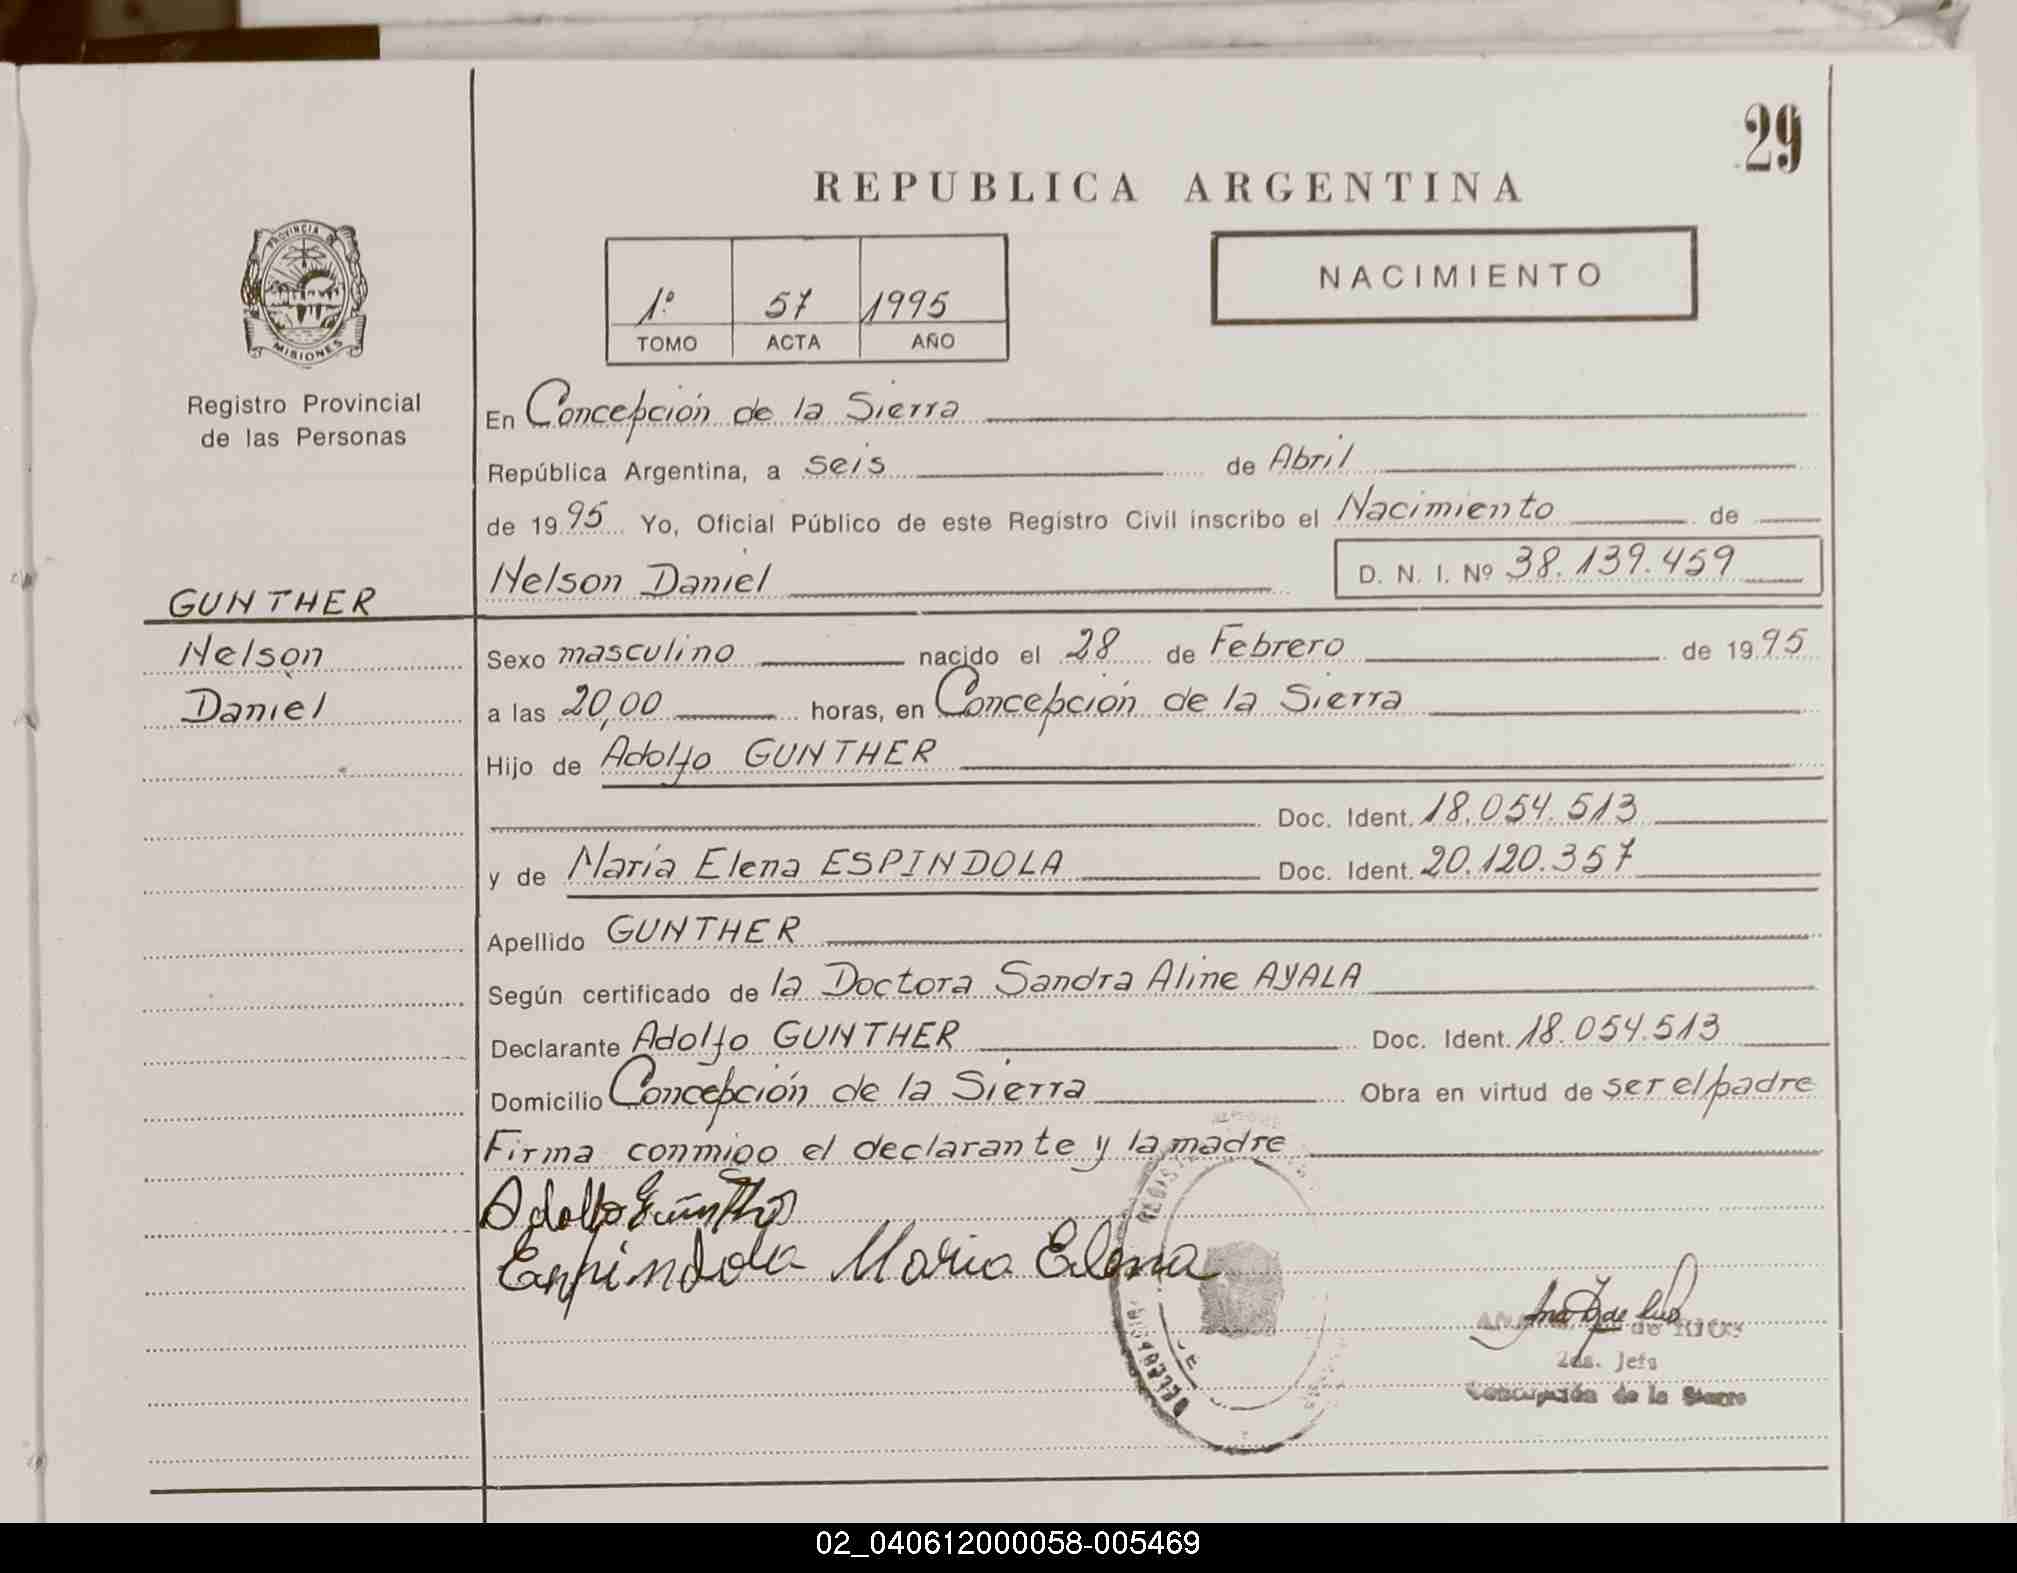 29
REPUBLICA ARGENTINA
PROVINCIA DE
MISIONES
Registro Provincial
de las Personas
1º 57 1995
TOMO ACTA AÑO
NACIMIENTO
En Concepción de la Sierra
República Argentina, a seis de Abril
de 1995 Yo, Oficial Público de este Registro Civil inscribo el Nacimiento de
Nelson Daniel D. N. I. Nº 38.139.459
GUNTHER
Nelson
Daniel
Sexo masculino nacido el 28 de Febrero de 1995
a las 20,00 horas, en Concepción de la Sierra
Hijo de Adolfo GUNTHER
Doc. Ident. 18.054.513
y de María Elena ESPINDOLA Doc. Ident. 20.120.357
Apellido GUNTHER
Según certificado de la Doctora Sandra Aline AYALA
Declarante Adolfo GUNTHER Doc. Ident. 18.054.513
Domicilio Concepción de la Sierra Obra en virtud de ser el padre
Firma conmigo el declarante y la madre
Adolfo Günther
Espindola Maria Elena
de RIOS
2da. Jefa
Concepción de la Sierra
02_040612000058-005469